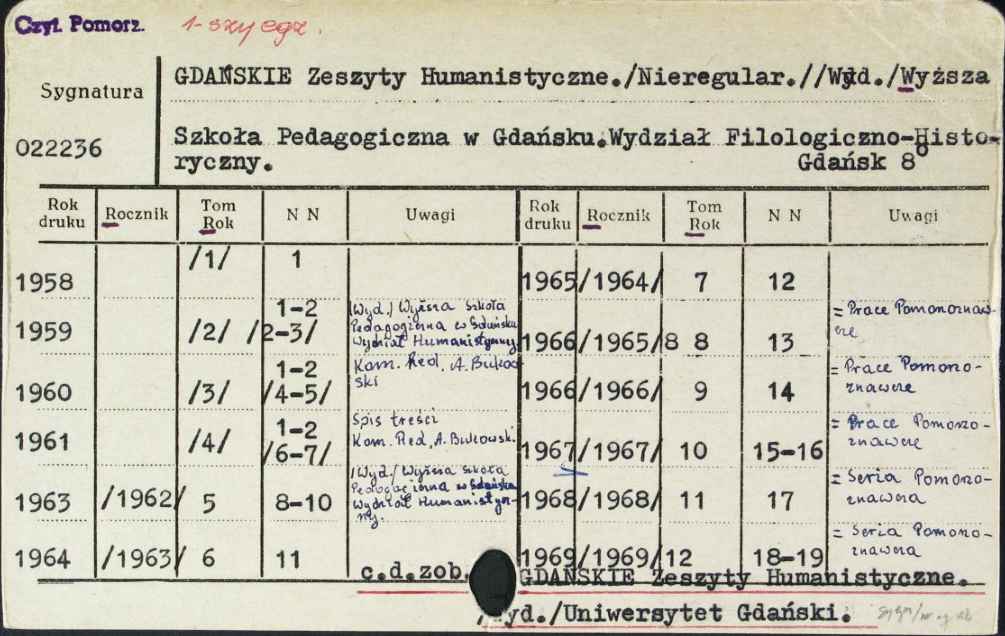 Czyt. Pomorz. 1-szy egz.
Sygnatura
022236
GDAŃSKIE Zeszyty Humanistyczne./Nieregular.//Wyd./Wyższa
Szkoła Pedagogiczna w Gdańsku.Wydział Filologiczno-Histo-
ryczny. Gdańsk 8°
Rok druku Rocznik Tom Rok N N Uwagi Rok druku Rocznik Tom Rok N N Uwagi
1958 /1/ 1
1959 /2/ 1-2 /2-3/ /Wyd./ Wyższa Szkoła Pedagogiczna w Gdańsku Wydział Humanistyczny
1960 /3/ 1-2 /4-5/ Kom. Red. A. Bukowski
1961 /4/ 1-2 /6-7/ Spis treści Kom. Red. A. Bukowski
1963 /1962/ 5 8-10 /Wyd./ Wyższa Szkoła Pedagogiczna w Gdańsku Wydział Humanistyczny.
1964 /1963/ 6 11
1965 /1964/ 7 12
1966 /1965/8 8 13 = Prace Pomorznawcze
1966 /1966/ 9 14 = Prace Pomorzo-znawcze
1967 /1967/ 10 15-16 = Prace Pomorzo-znawcze
1968 /1968/ 11 17 = Seria Pomorzo-znawcza
1969 /1969/ 12 18-19 = Seria Pomorzo-znawcza
c.d.zob. GDAŃSKIE Zeszyty Humanistyczne.
/Wyd./Uniwersytet Gdański.